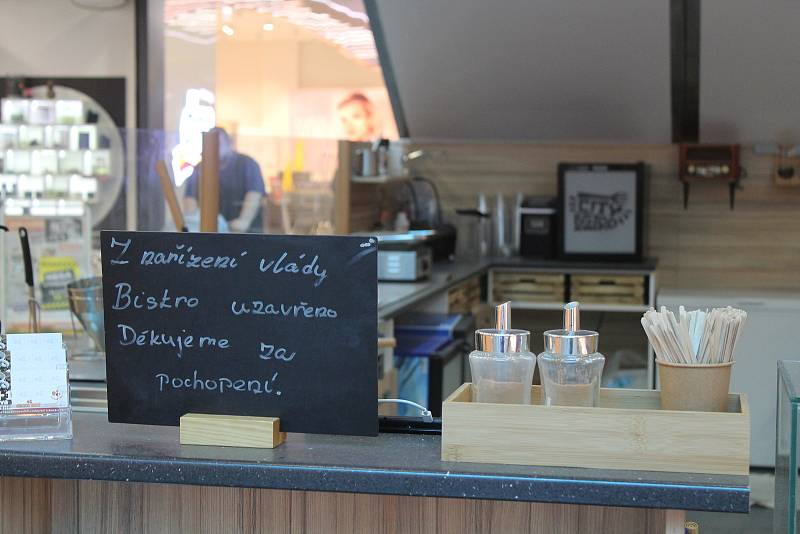 Z nařízení vlády
Bistro uzavřeno
Děkujeme za
pochopení.
CITY